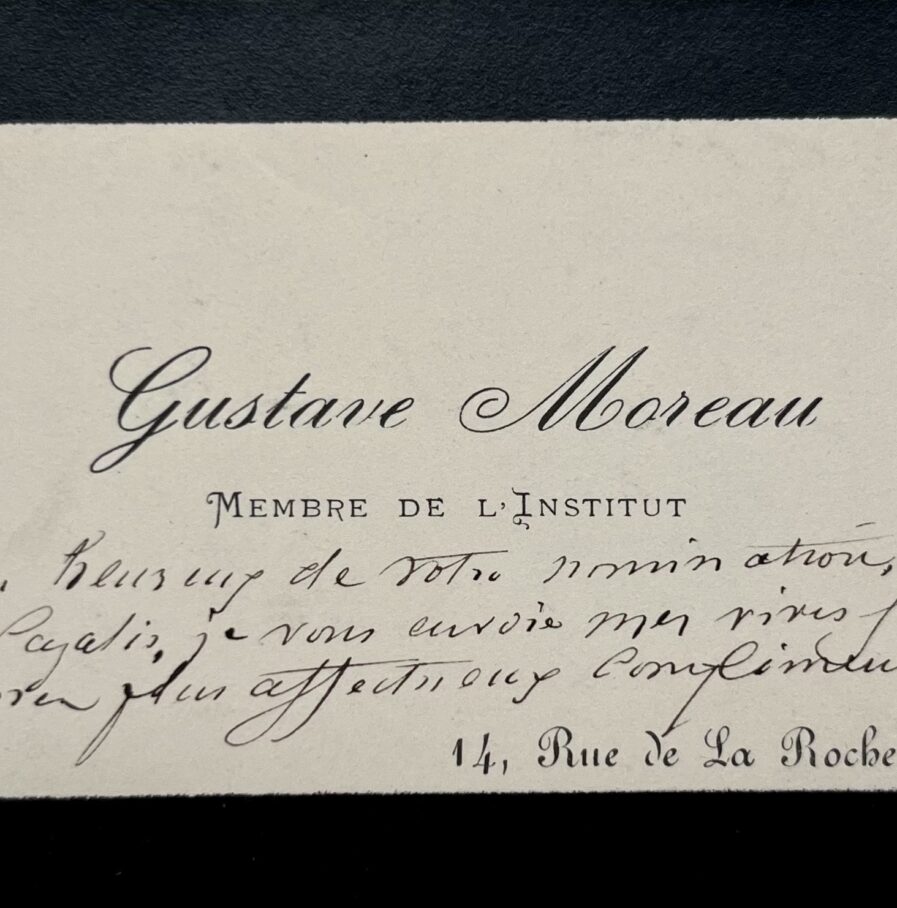 Gustave Moreau
MEMBRE DE L'INSTITUT
heureux de votre nomination,
je vous envoie mes vives
plus affectueux complimen
14, Rue de La Roche